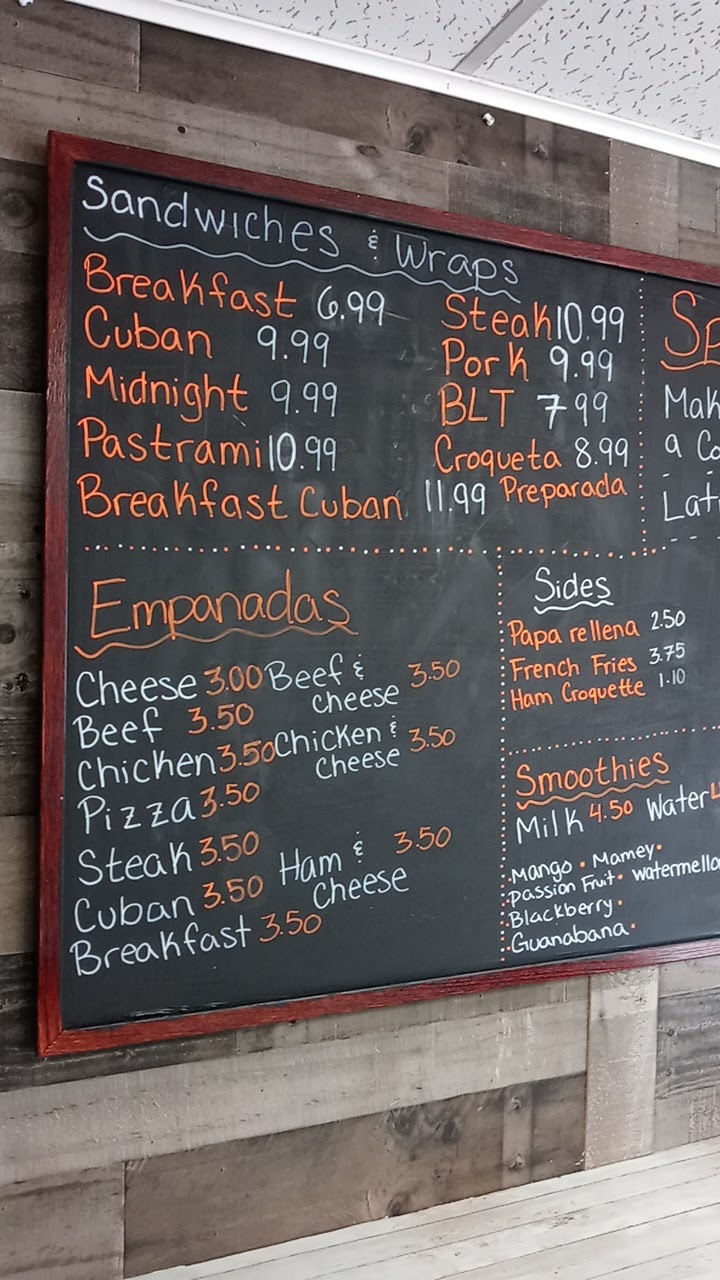 Sandwiches & Wraps
Breakfast 6.99
Cuban 9.99
Midnight 9.99
Pastrami 10.99
Breakfast Cuban 11.99
Steak 10.99
Pork 9.99
BLT 7 99
Croqueta 8.99
Preparada
Empanadas
Cheese 3.00
Beef 3.50
Chicken 3.50
Pizza 3.50
Steak 3.50
Cuban 3.50
Breakfast 3.50
Beef & 3.50
Cheese
Chicken & 3.50
Cheese
Ham & 3.50
Cheese
Sides
Papa rellena 2.50
French Fries 3.75
Ham Croquette 1.10
Smoothies
Milk 4.50 Water
Mango • Mamey •
passion Fruit •
Blackberry •
Guanabana •
a